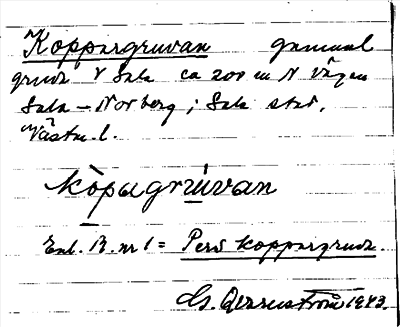 Koppargruvan gammal
gruva V Sala ca 200 m N vägen
Sala – Norberg; Sala stad,
Västm. l.
kòpagrúvan
Enl. B. nr 1 = Pers koppargruva.
G. 1943.